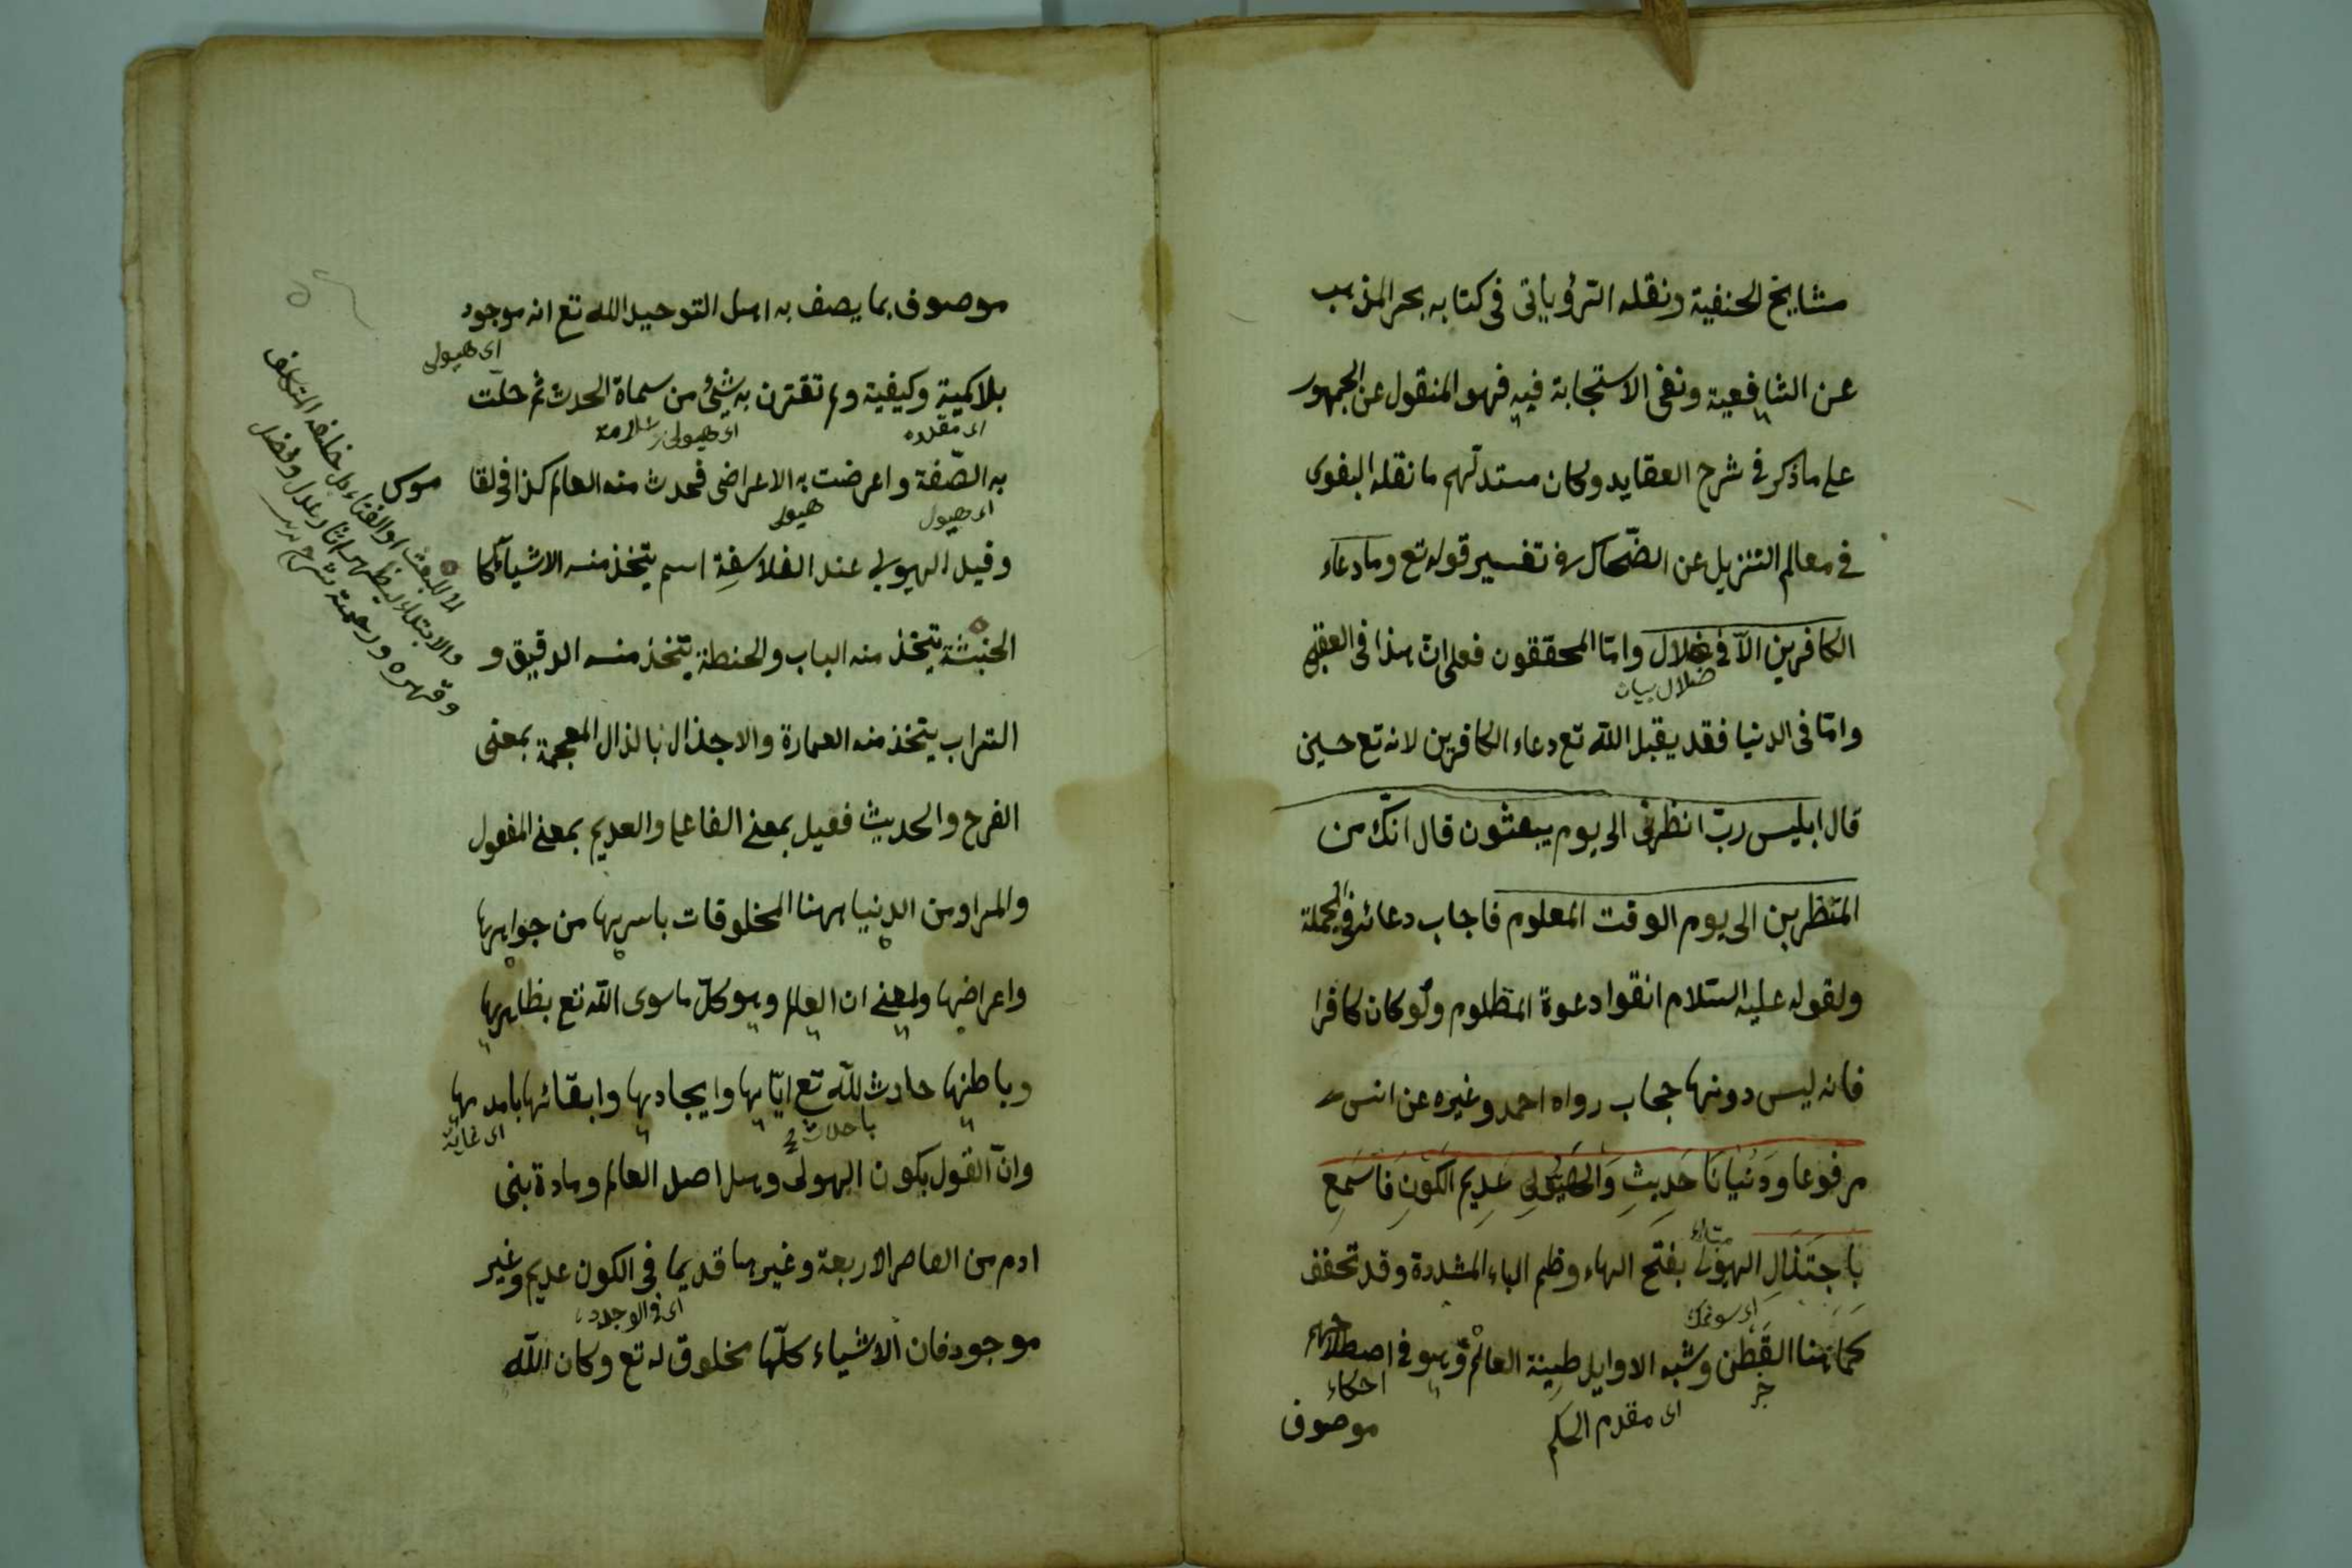 مشايخ الحنفية ونقله الرؤياني في كتابه بحر المذهب
عن الشافعية ونفى الاستجابة فيه فهو المنقول عن الجمهور
على ما ذكر في شرح العقايد وكان مستدلهم ما نقله البغوى
في معالم التنزيل عن الضحاك في تفسير قوله تع وما دعاء
الكافرين الآ في ضلال وامّا المحققون فعلى ان هذا في العقبى
ضلال بيان
وامّا في الدنيا فقد يقبل الله تع دعاء الكافرين لانه تع حين
قال ابليس ربّ انظرنى الى يوم يبعثون قال انّك من
المنظرين الى يوم الوقت المعلوم فاجاب دعائه في الجملة
ولقوله عليه السّلام اتقوا دعوة المظلوم ولو كان كافرا
فانه ليس دونها حجاب رواه احمد وغيره عن انس
مرفوعا ودُنيانَا حَدِيثِ وَالهَيُولِى عَدِيم الكَونِ فَاسْمَع
بِاجتَذَالِ الهيولى بفتح الهاء وضم الياء المشددة وقد تخفف
كما هنا القطن وشبه الاوايل طينة العالم وهو في اصطلاحهم
اى مقدم الحكم
موصوف
موصوف بما يصف به اهل التوحيد الله تع انه موجود
اى هيولى
بلا كمية وكيفية ولم تقترن به شئ من سماة الحدث ثم حلّت
اى مقدره
اى هيولى
علامة
به الصّفة واعرضت به الاعراض فحدث منه العالم كذا في القا
موس
اى هيولى
هيولى
وقيل الهيولى عند الفلاسفة اسم يتخذ منه الاشياء كما
الخشبة يتخذ منه الباب والحنطة يتخذ منه الدقيق و
التراب يتخذ منه العمارة والاجتذال بالذال المعجمة بمعنى
الفرح والحديث فعيل بمعنى الفاعل والعديم بمعنى المفعول
والمراد من الدنيا ههنا المخلوقات باسرها من جواهرها
واعراضها والمعنى ان العالم وهو كلّ ما سوى الله تع بظاهرها
وباطنها حادث لله تع ايّاها وايجادها وابقائها بامدها
اى غاية
وانّ القول بكون الهيولى وهل اصل العالم ومادة بنى
ادم من العاصر الاربعة وغيرها قديما في الكون عديم وغير
اى في الوجود
موجود فان الاشياء كلّها مخلوق له تع وكان الله